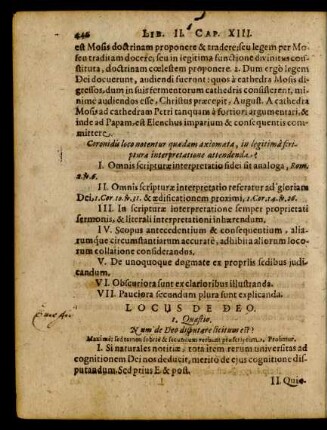 446 LIB. II. CAP. XIII.
est Mosis doctrinam proponere & tradere, seu legem per Mosen traditam docere, seu in legitima functione divinitus constituta, doctrinam cœlestem proponere. 2. Dum ergò legem
Dei docuerunt, audiendi fuerunt: quos à cathedra Mosis digressos, dum in suis fermentorum cathedris consisterent, minimè audiendos esse, Christus præcepit, August. A cathedra
Mosis ad cathedram Petri tanquam à fortiori argumentari, &
inde ad Papam, est Elenchus imparium & consequentis committere.
Coronidis loco notentur quædam axiomata, in legitima scriptura interpretatione attendenda.
I. Omnis scripturæ interpretatio fidei sit analoga, Rom. 12. 6.
II. Omnis scripturæ interpretatio referatur ad gloriam
Dei, 1. Cor. 10. 31. & ædificationem proximi, 1. Cor. 14. 26.
III. In scripturæ interpretatione semper proprietati
sermonis, & literali interpretationi inhærendum.
IV. Scopus antecedentium & consequentium, aliarumque circumstantiarum accuratè, adhibita aliorum locorum collatione considerandus.
V. De unoquoque dogmate ex propriis sedibus judicandum.
VI. Obscuriora sunt ex clarioribus illustranda.
VII. Pauciora secundùm plura sunt explicanda.
LOCUS DE DEO.
1. Quæstio.
Num de Deo disputare licitum est?
Maximè licitum sobriè & secundum verbum præscriptum. 1. Probatur.
I. Si naturales notitiæ, tota item rerum universitas ad
cognitionem Dei nos deducit, meritò de ejus cognitione disputandum. Sed prius E & post.
II. Quia